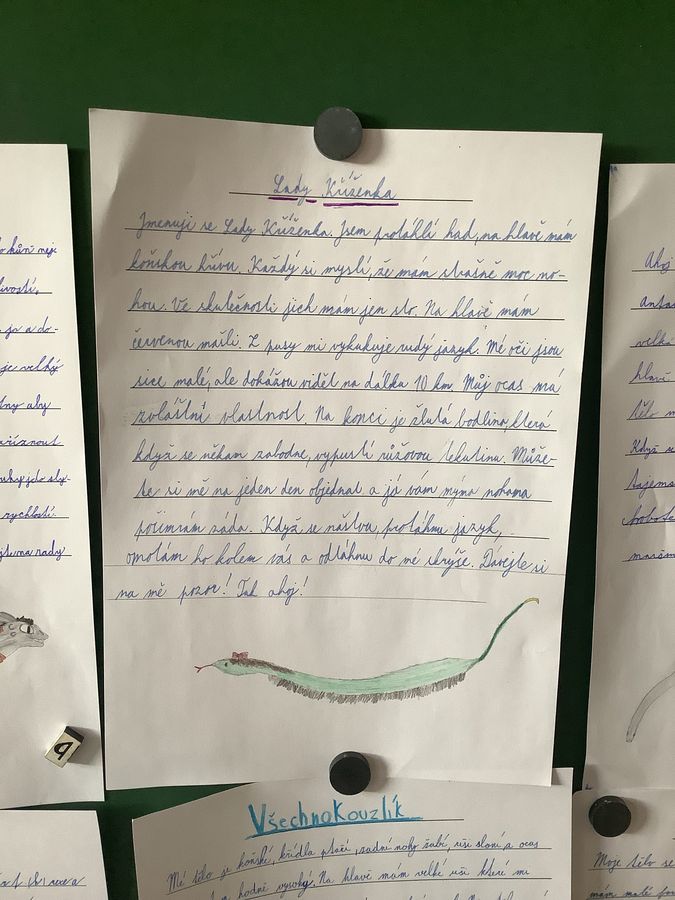 Lady Kříženka
Jmenuji se Lady Kříženka. Jsem protáklí had, na hlavě mám
koňskou hřívu. Každý si myslí, že mám strašně moc no-
hou. Ve skutečnosti jich mám jen sto. Na hlavě mám
červenou mašli. Z pusy mi vykukuje rudý jazyk. Mé oči jsou
sice malé, ale dokážou vidět na dálku 10 km. Můj ocas má
zvláštní vlastnost. Na konci je žlutá bodlina, která
když se někam zabodne, vypustí růžovou tekutinu. Může-
te si mě na jeden den objednat a já vám mýma nohama
pošimrám záda. Když se naštvu, protáhnu jazyk,
omotám ho kolem vás a odtáhnu do mé skrýše. Dávejte si
na mě pozor! Tak ahoj!
o kůň nej
livostí,
je a do-
je velký
aby
říznout
rychlostí.
na rady
9
Ahoj
velká
hlavě
tělo
Když
VšechnoKouzlík
Mé tělo je koňské, křídla ptačí, zadní nohy žabí, uši sloní a ocas
hodně vysoký. Na hlavě mám velké uši které mi
Moje tělo se
mám malé